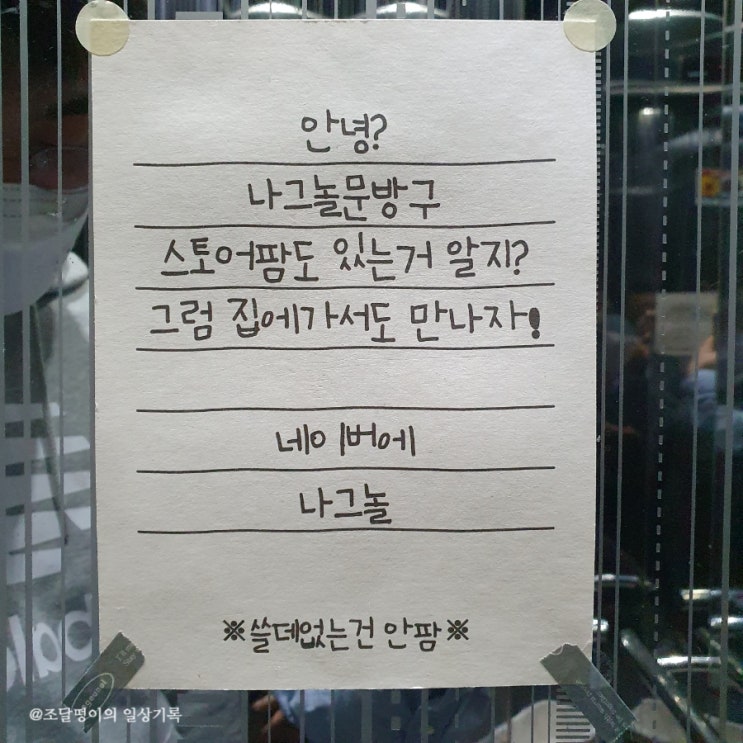 안녕?
나그놀문방구
스토어팜도 있는거 알지?
그럼 집에가서도 만나자!
네이버에
나그놀
※쓸데없는건 안팜※
@조달평이의 일상기록